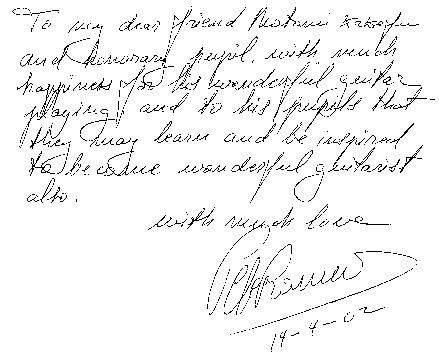 To my dear friend
and honorary pupil. with much
happiness for his wonderful guitar
playing, and to his pupils that
they may learn and be inspired
to become wonderful guitarist
also.
with much love
Pepe Romero
14-4-02